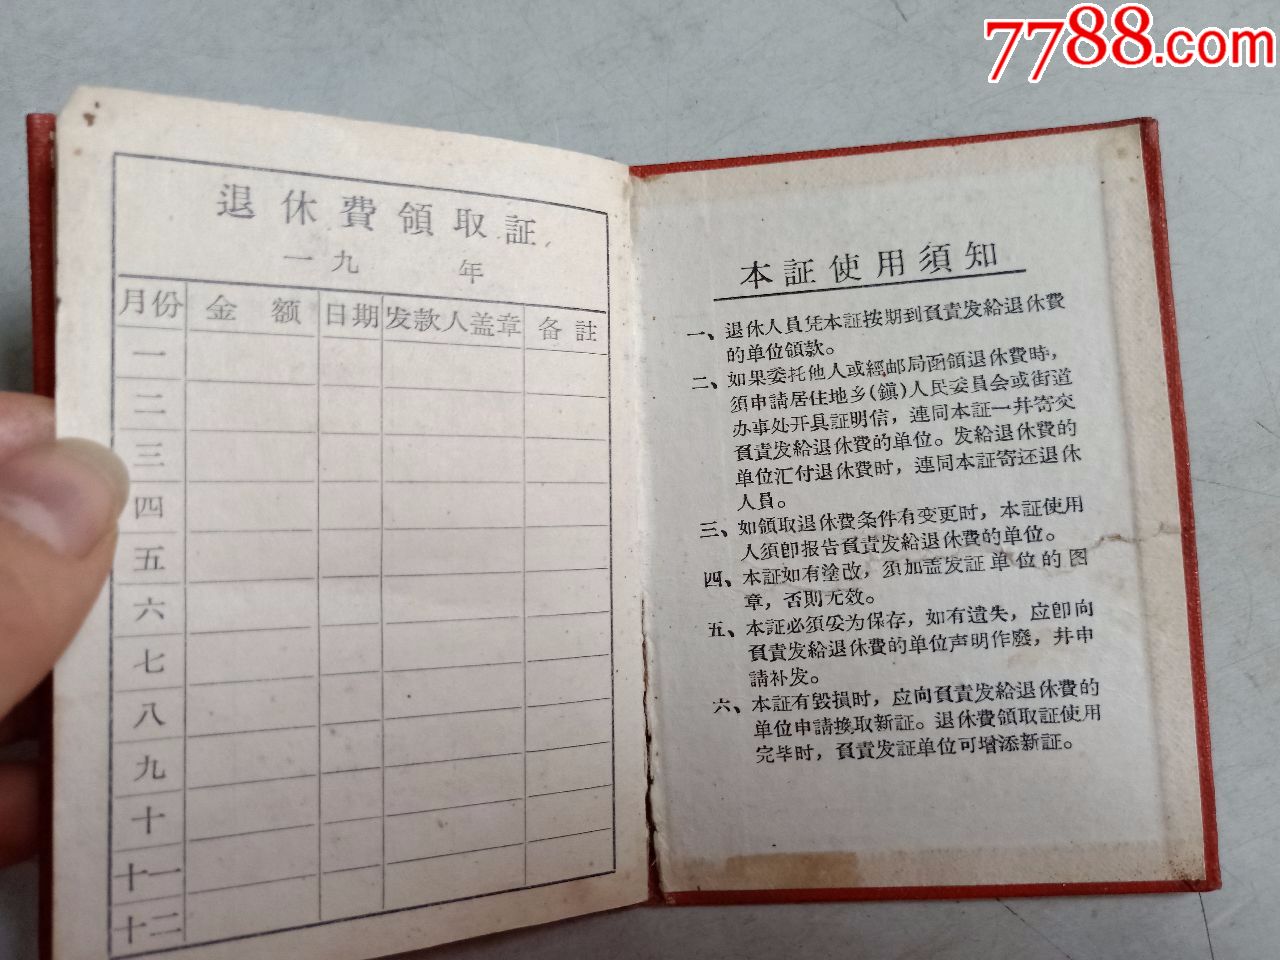 7788.com
退休費領取証
一九　　年
月份 金　額 日期 发款人盖章 备註
一
二
三
四
五
六
七
八
九
十
十一
十二
本証使用須知
一、退休人員凭本証按期到負責发給退休費
的单位領款。
二、如果委托他人或經邮局函領退休費時，
須申請居住地乡(鎭)人民委員会或街道
办事处开具証明信，連同本証一幷寄交
負責发給退休費的单位。发給退休費的
单位汇付退休費时，連同本証寄还退休
人員。
三、如領取退休費条件有变更时，本証使用
人須卽报告負責发給退休費的单位。
四、本証如有塗改，須加盖发証单位的图
章，否則无效。
五、本証必須妥为保存，如有遺失，应卽向
負責发給退休費的单位声明作廢，幷申
請补发。
六、本証有毁損时，应向負責发給退休費的
单位申請換取新証。退休費領取証使用
完毕时，負責发証单位可增添新証。